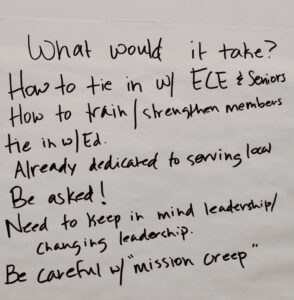 What would it take?
How to tie in w/ ECE & Seniors
How to train/strengthen members
tie in w/Ed.
Already dedicated to serving local
Be asked!
Need to keep in mind leadership/
changing leadership.
Be careful w/ "mission creep"